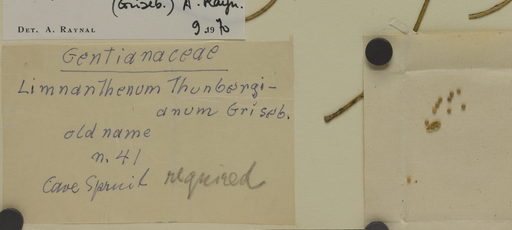 (Griseb.) A. Rayn.
DET. A. RAYNAL 9.1970
Gentianaceae
Limnanthenum Thunbergi-
anum Griseb.
old name
n. 41
Cave Spruit required